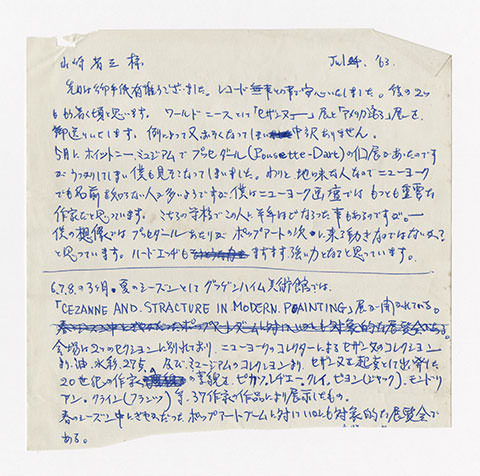 山崎省三様 Jul 24. '63.
先日は御手紙有難うございました。レコード無事との事で安心いたしました。後の2つ
も も着く頃と思います。ワールドニースとして「セザンヌ」展と「アメリカ
御送りいたします。例によって又おそくなってしまい 申訳ありません。
5月にホイットニーミュジアムでプセダール(Pousette-Dart)の個展があったのです
がうっかりしてしまい僕も見そこなってしまいました。わりと地味な人なのでニューヨーク
でも名前を知らない人が多いようですが僕はニューヨーク画壇ではもっとも重要な
作家だと思っています。こちらの学校でこの人と半年ほどなった事もあるのですが。ー
僕の想像ではプセダールあたりがポップアートの次に来る動きなのではないか?
と思っています。ハードエッヂも ますます強い力となると思っています。
6.7.8.の3ヶ月。夏のシーズンとしてグッゲンハイム美術館では、
「CEZANNE AND STRACTURE IN MODERN PAINTING」展が開かれている。
春のシーズン中 ポップアートブームに対していかにも対象的な展覧会である。
会場は2つのセクションに別れており、ニューヨークのコレクターによるセザンヌのコレクション
油、水彩、27点、及びミュージアムのコレクション、セザンヌを起点として出発した
20世紀の作家 の業績を、ピカソ、レヂエー、クレイ、ビヨン(ジャック)、モンドリ
アン、クライン(フランツ)等、37作家の作品により展示したもの。
春のシーズン中にぎやかだったポップアートブームに対していかにも対象的な展覧会で
ある。